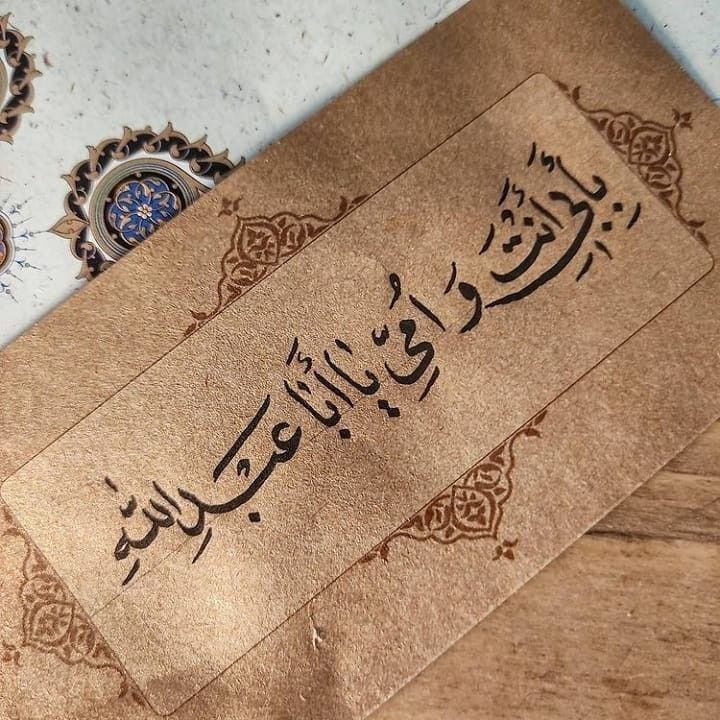 بِأَبي أَنْتَ وَ اُمّي يا أَبا عَبْدِ اللهِ